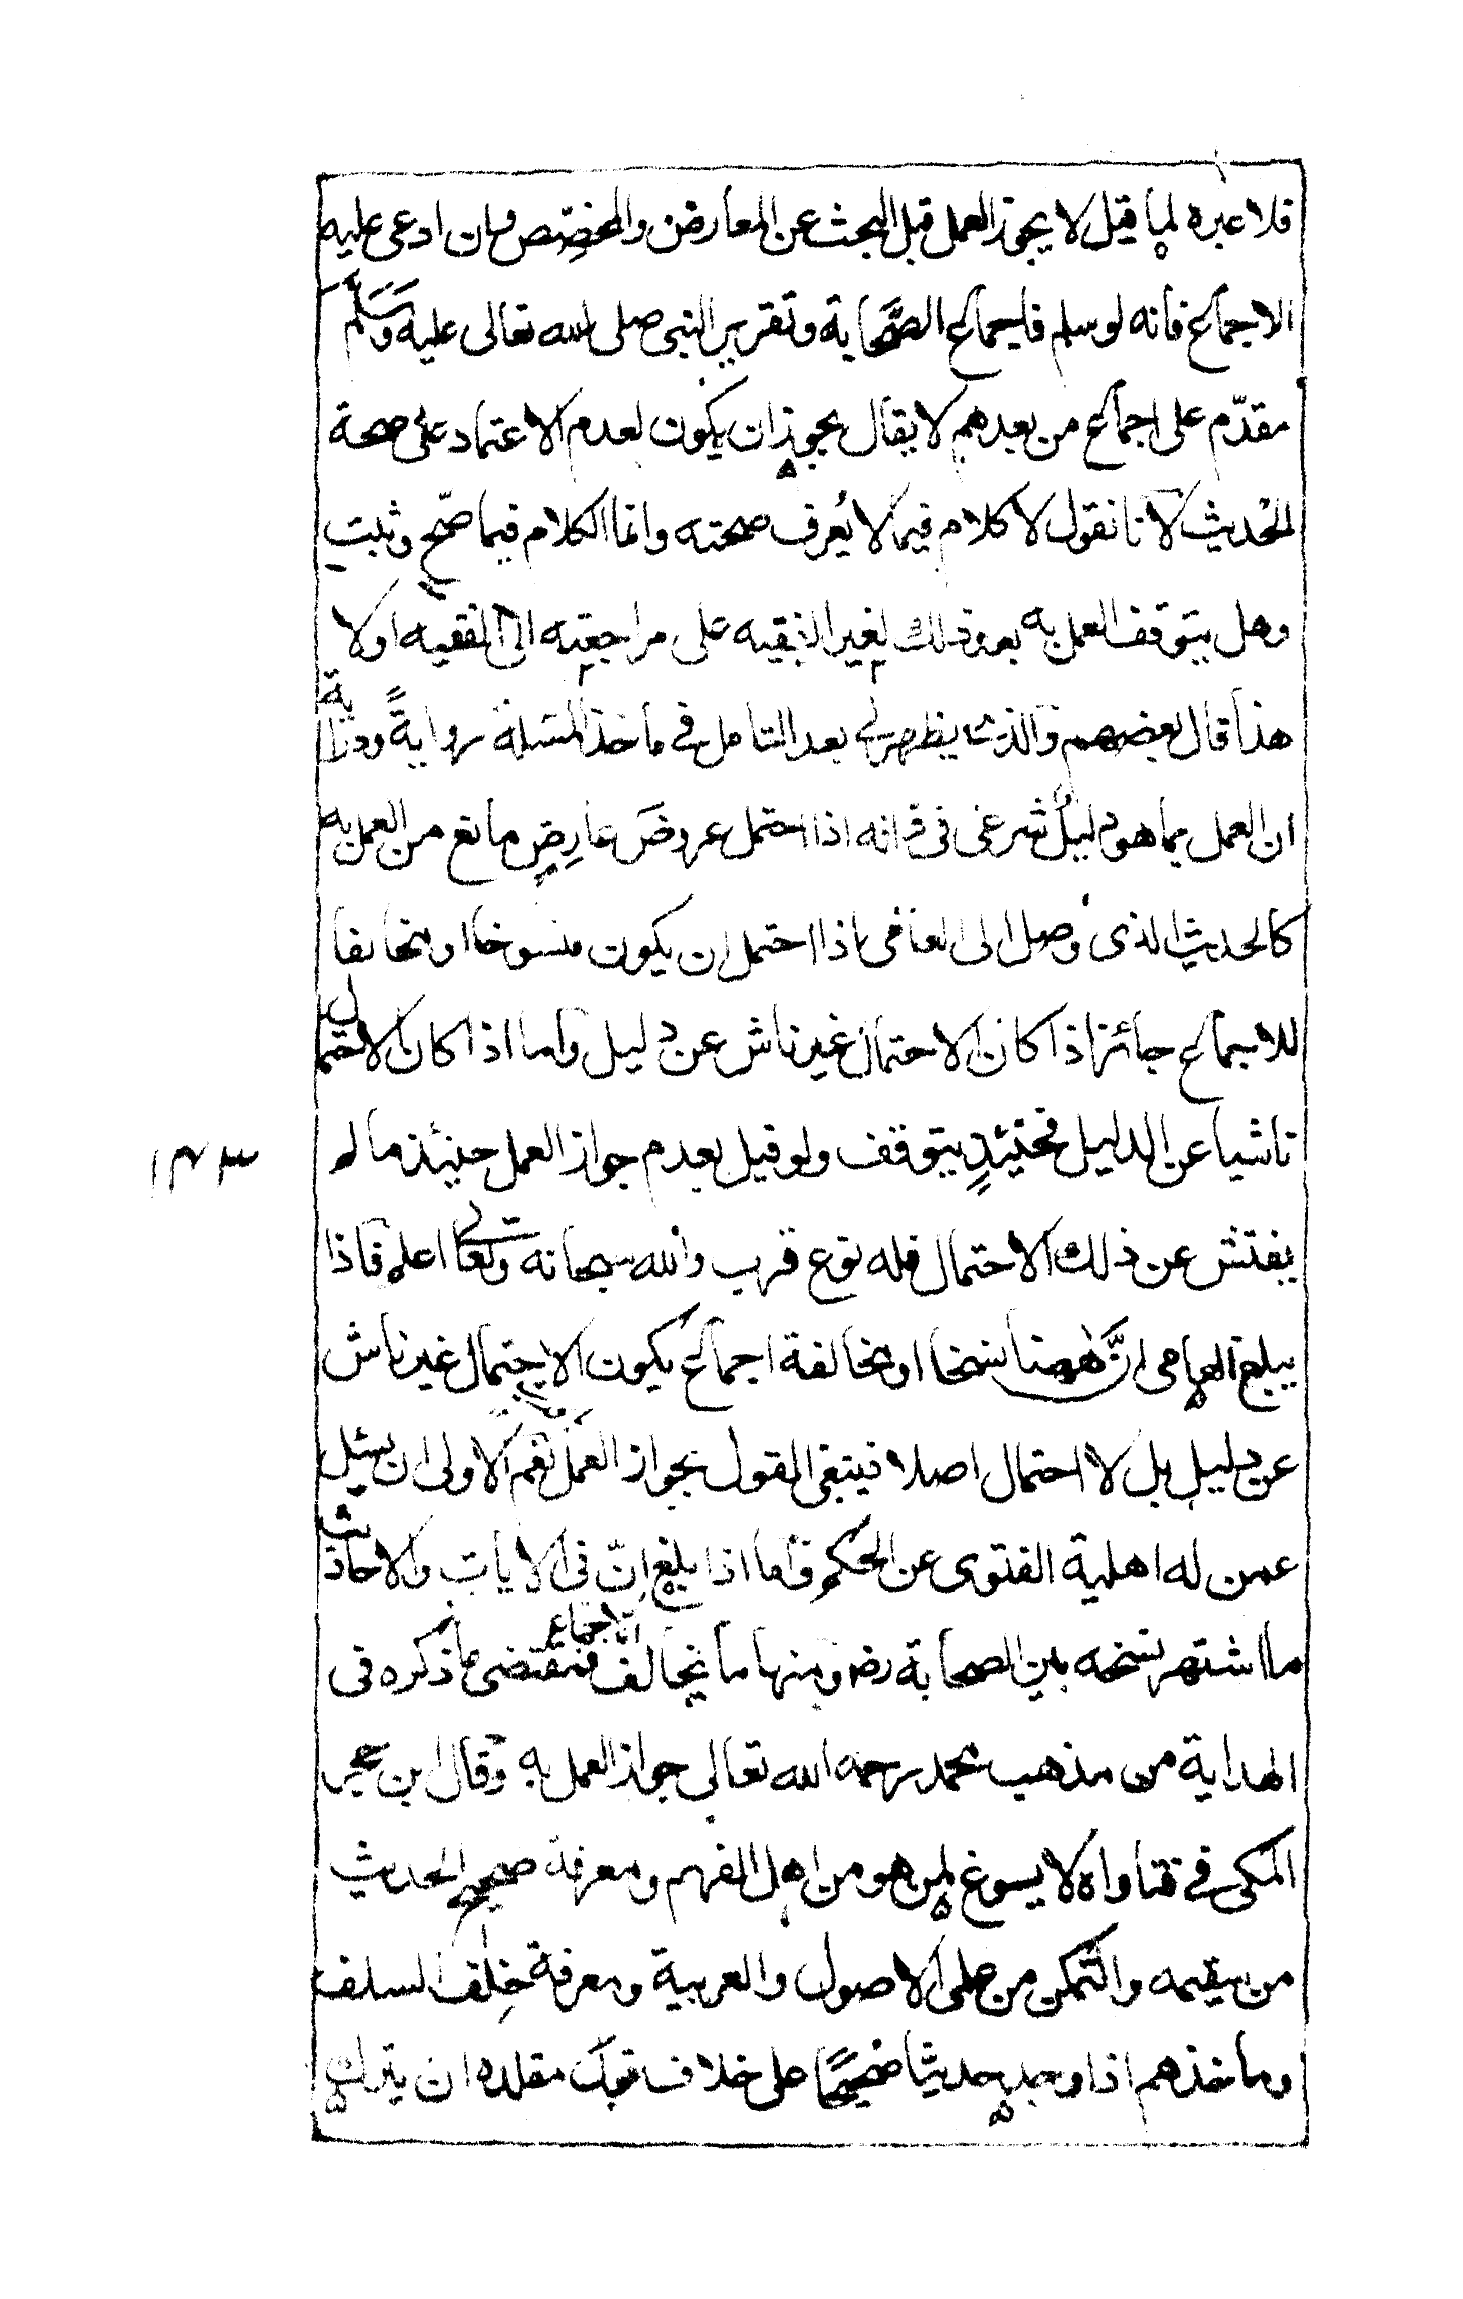 فلا عبرة لما قيل لا يجوز العمل قبل البحث عن المعارض والمخصّص وان ادعى عليه
الاجماع فانه لو سلم فاجماع الصّحابة وتقرير النبى صلى الله تعالى عليه وَسَلَّم
مقدّم على اجماع من بعدهم لا يقال يجوز ان يكون لعدم الاعتماد على صحة
الحديث لانا نقول لا كلام فيما لا يُعرف صحته وانما الكلام فيما صّح وثبت
وهل يتوقف العمل به بعد ذلك لغير الفقيه على مراجعته الى الفقيه اولا
هذا قال بعضهم والذى يظهر لى بعد التامل فى ماخذ المسئلة روايةً ودراية
ان العمل بما هو دليلٌ شرعى فى ذاته اذا احتمل عروضَ عارضٍ مانع من العمل به
كالحديث الذى وصل الى العامى اذا احتمل ان يكون منسوخا او مخالفا
للاجماع جائز اذا كان الاحتمال غير ناش عن دليل واما اذا كان الاحتمال
ناشيا عن الدليل فحينئذٍ يتوقف ولو قيل بعدم جواز العمل حينئذ ما لم
١٤٣
يفتش عن ذلك الاحتمال فله نوع قرب والله سبحانه وتعالى اعلم فاذا
يبلغ العامى انَّ ههنا نسخا او مخالفة اجماع يكون الاحتمال غير ناش
عن دليل بل لا احتمال اصلا فينبغى القول بجواز العمل نعم الاولى ان يسئل
عمن له اهلية الفتوى عن الحكم واما اذا بلغ انّ فى الايات والاحاديث
ما اشتهر نسخه بين الصحابة رض ومنها ما يخالف الاجماع فمقتضى ما ذكره فى
الهداية من مذهب محمد رحمه الله تعالى جواز العمل به وقال ابن حجر
المكى فى فتاواه لا يسوغ لمن هو من اهل الفهم ومعرفة صحيح الحديث
من سقيمه والتمكن من على الاصول والعربية ومعرفة خلف السلف
وماخذهم اذا وجد حديثًا صحيحًا على خلاف قول مقلده ان يترك